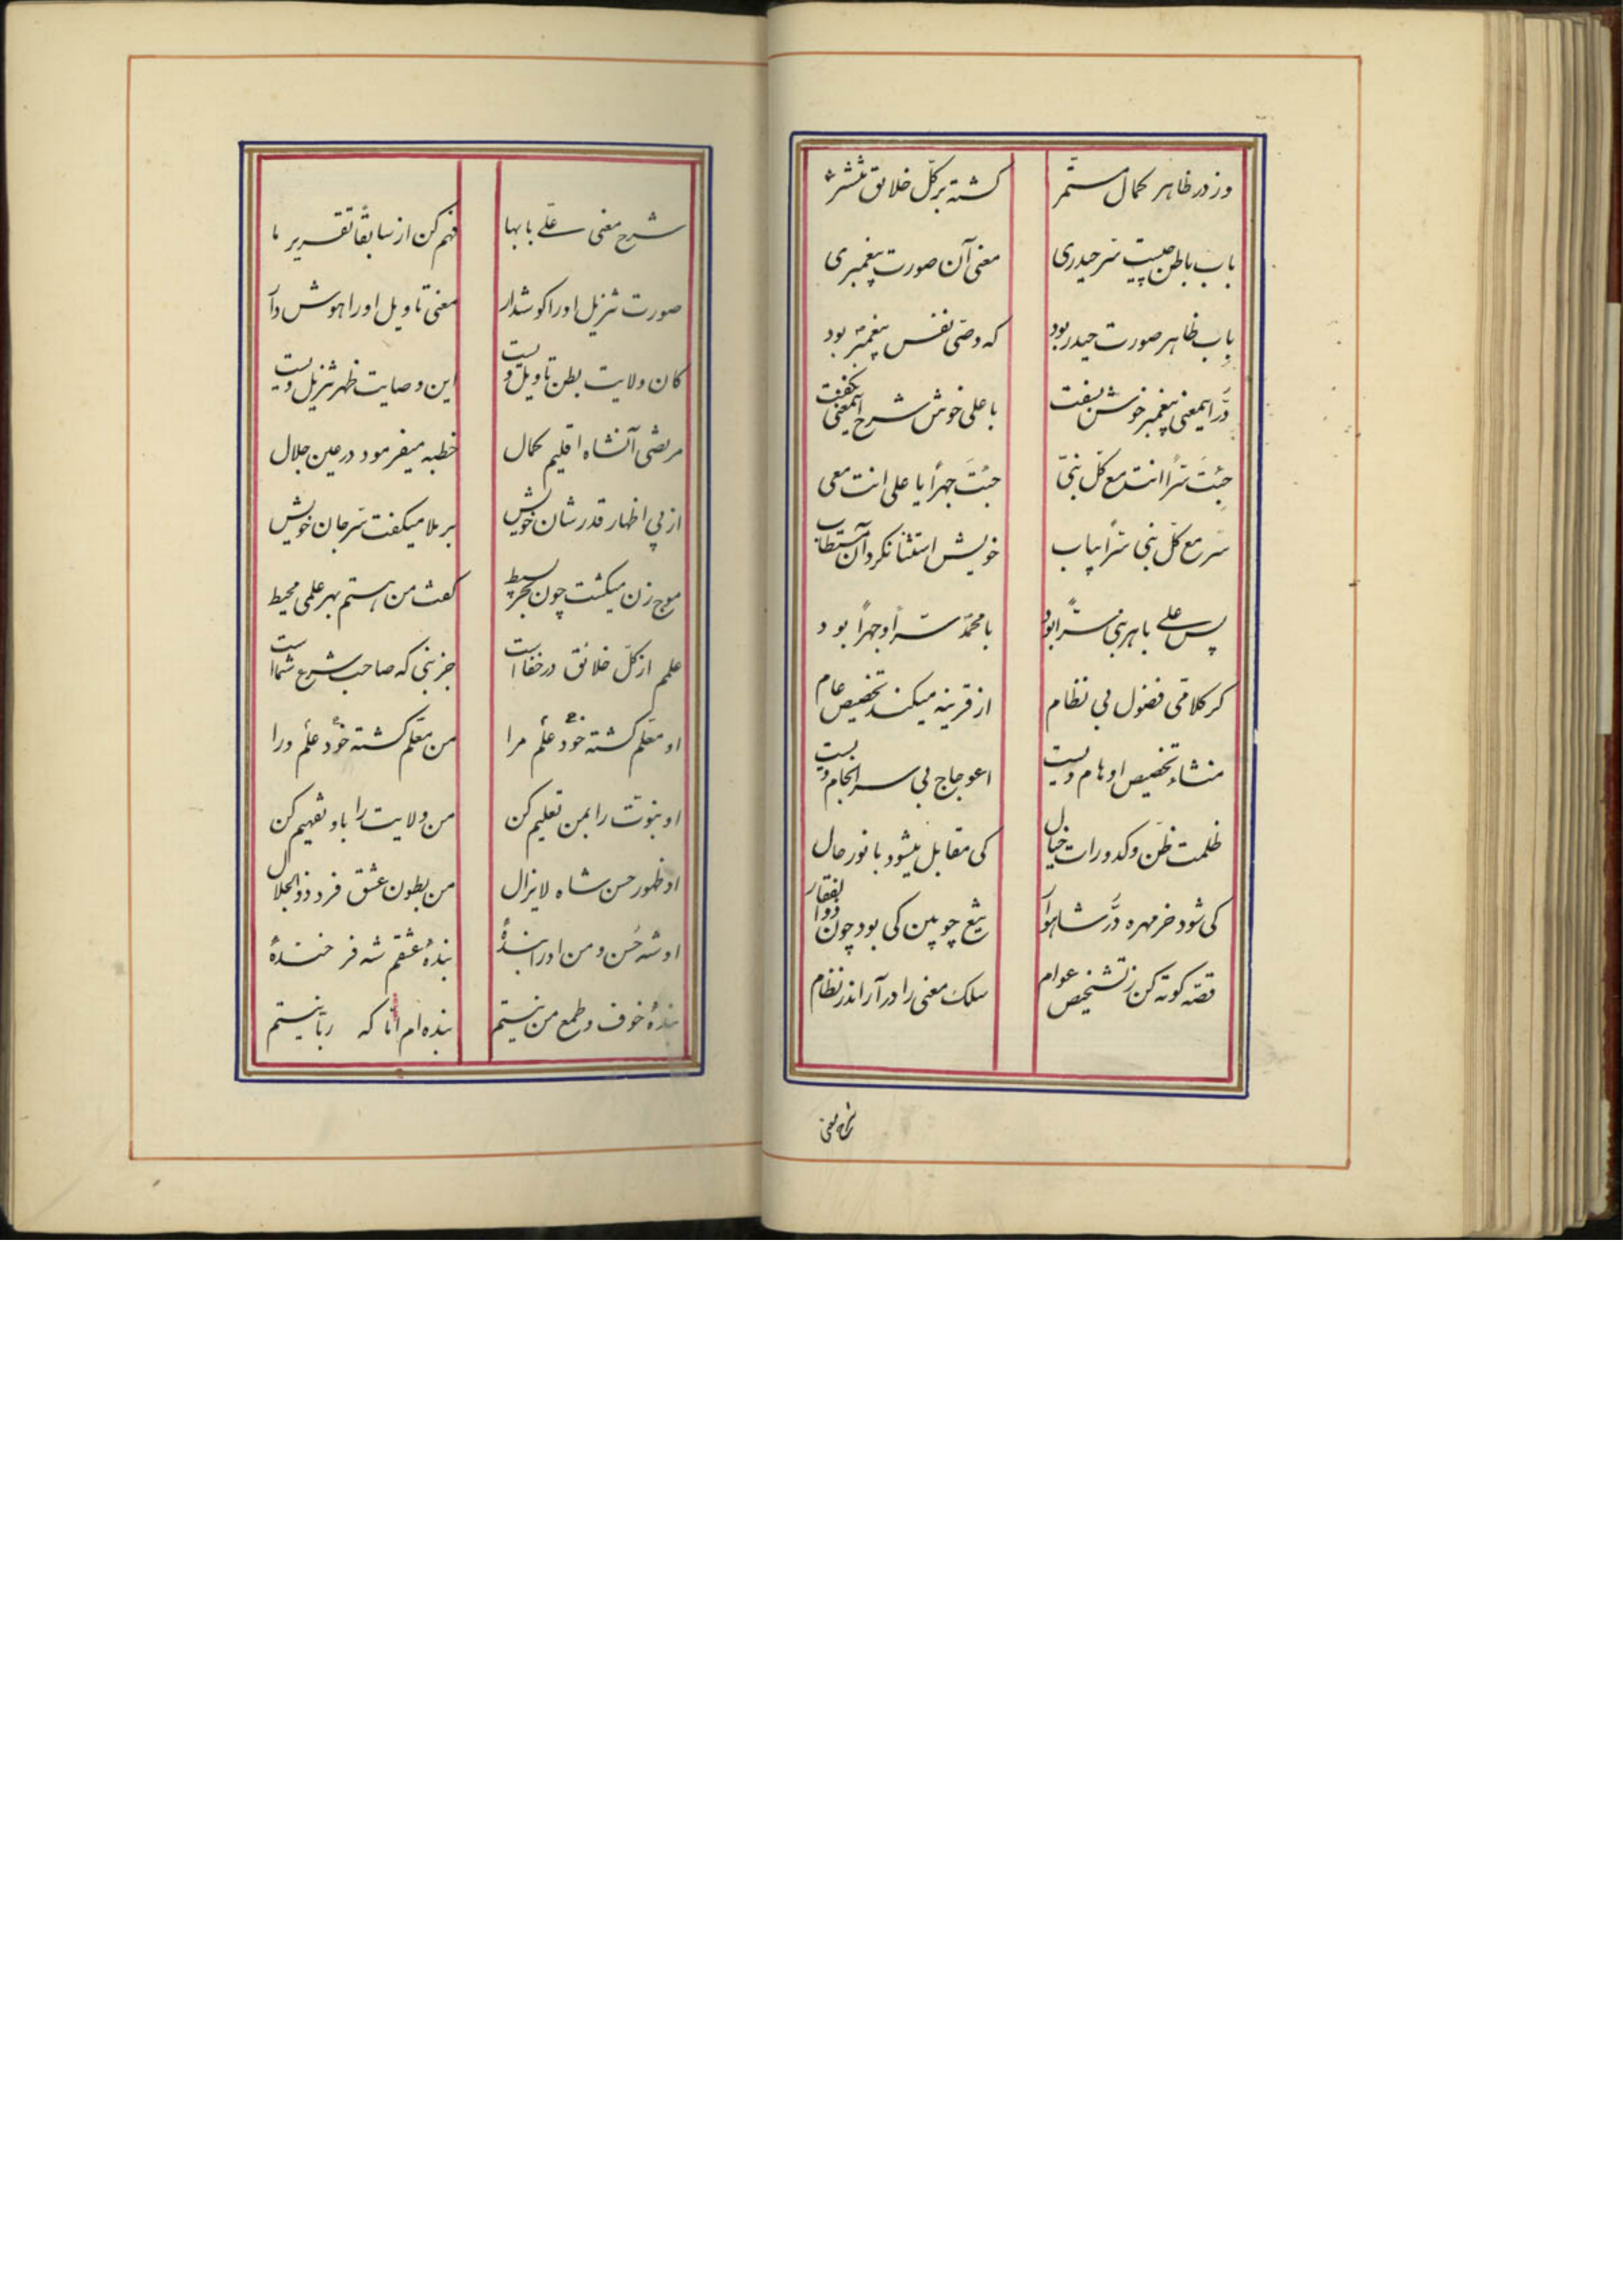 وز در ظاهر کمال مستمر گشته بر کل خلائق منتشر
باب باطن چیست سر حیدری معنی آن صورت پیغمبری
باب ظاهر صورت حیدر بود که وصی نفس پیغمبر بود
در اینمعنی پیغمبر خوش بسفت با علی خوش شرح اینمعنی بگفت
جئت سراً انت مع کل نبی جئت جهراً یا علی انت معی
سر مع کل نبی سراً بیاب خویش استثنا نکرد آن مستطاب
پس علی با هر نبی سراً بود با محمد سراً و جهراً بود
گر کلامی فضول بی نظام از قرینه میکند تخصیص عام
منشاء تخصیص اوهام ویست اعوجاج بی سرانجام ویست
ظلمت ظن و کدورات خیال کی مقابل میشود با نور حال
کی شود خرمهره در شاهوار تیغ چوبین کی بود چون ذوالفقار
قصه کوته کن ز تشخیص عوام سلک معنی را درآر اندر نظام
شرح معنی
شرح معنی علی بابها فهم کن از سابقاً تقریر ما
صورت تنزیل او را گوشدار معنی تاویل او را هوش دار
کان ولایت بطن تاویل ویست این وصایت ظهر تنزیل ویست
مرتضی آنشاه اقلیم کمال خطبه میفرمود در عین جلال
از پی اظهار قدر شان خویش بر ملا میگفت سر جان خویش
موج زن میگشت چون بحر بسیط گفت من هستم بهر علمی محیط
علمم از کل خلائق در خفا است جز نبی که صاحب شرع شما است
او معلم گشته خود علم مرا من معلم گشته خود علم ورا
او نبوت را بمن تعلیم کن من ولایت را باو تفهیم کن
او ظهور حسن شاه لایزال من بطون عشق فرد ذوالجلال
او شه حسن و من او را بندهٔ بندهٔ عشقم شه فرخندهٔ
بندهٔ خوف و طمع من نیستم بنده ام اما که ربا نیستم